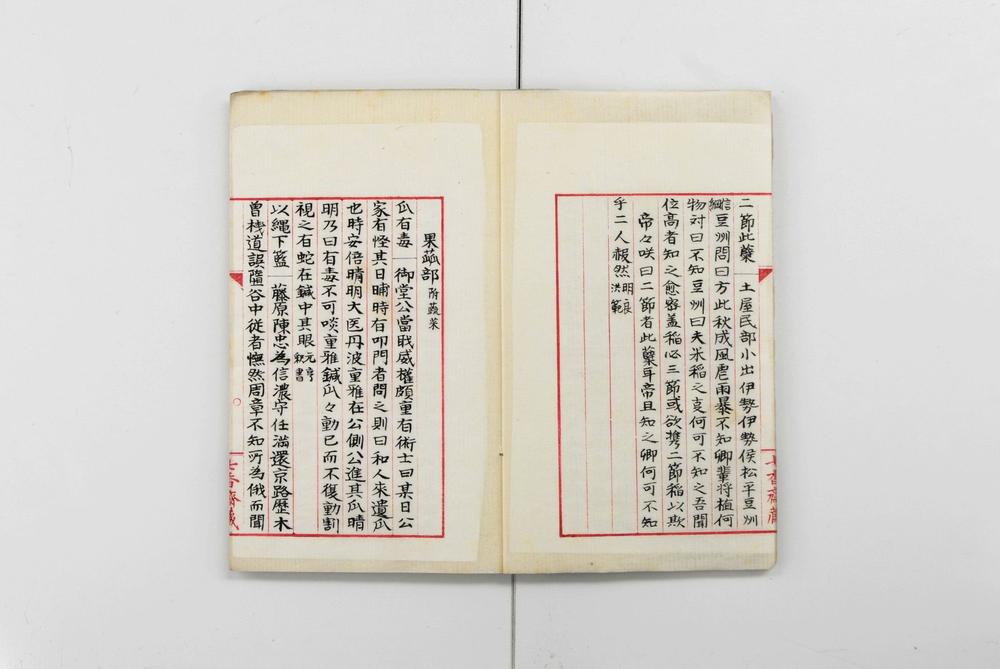 二節此藁　土屋民部小出伊勢伊勢侯松平豆洲
信綱豆洲問曰方此秋成風虐雨暴不知卿輩将植何
物対曰不知豆洲曰夫米稲之麦何可不知之吾聞
位高者知之愈密盖稲必三節或欲携二節稲以欺
帝々咲曰二節者此藁耳帝且知之卿何可不知
乎二人赧然明良洪範
果蓏部附蔬菜
瓜有毒　御堂公當戢威權頗重有術士曰某日公
家有怪其日晡時有叩門者問之則曰和人來遺瓜
也時安倍晴明大医丹波重雅在公側公進其瓜晴
明乃曰有毒不可啖重雅鍼瓜々動已而不復動割
視之有蛇在鍼中其眼元亨釈書
以繩下籃　藤原陳忠為信濃守任満還京路歴木
曽桟道誤隘谷中従者憮然周章不知所為俄而聞
七香齋藏
七香齋藏